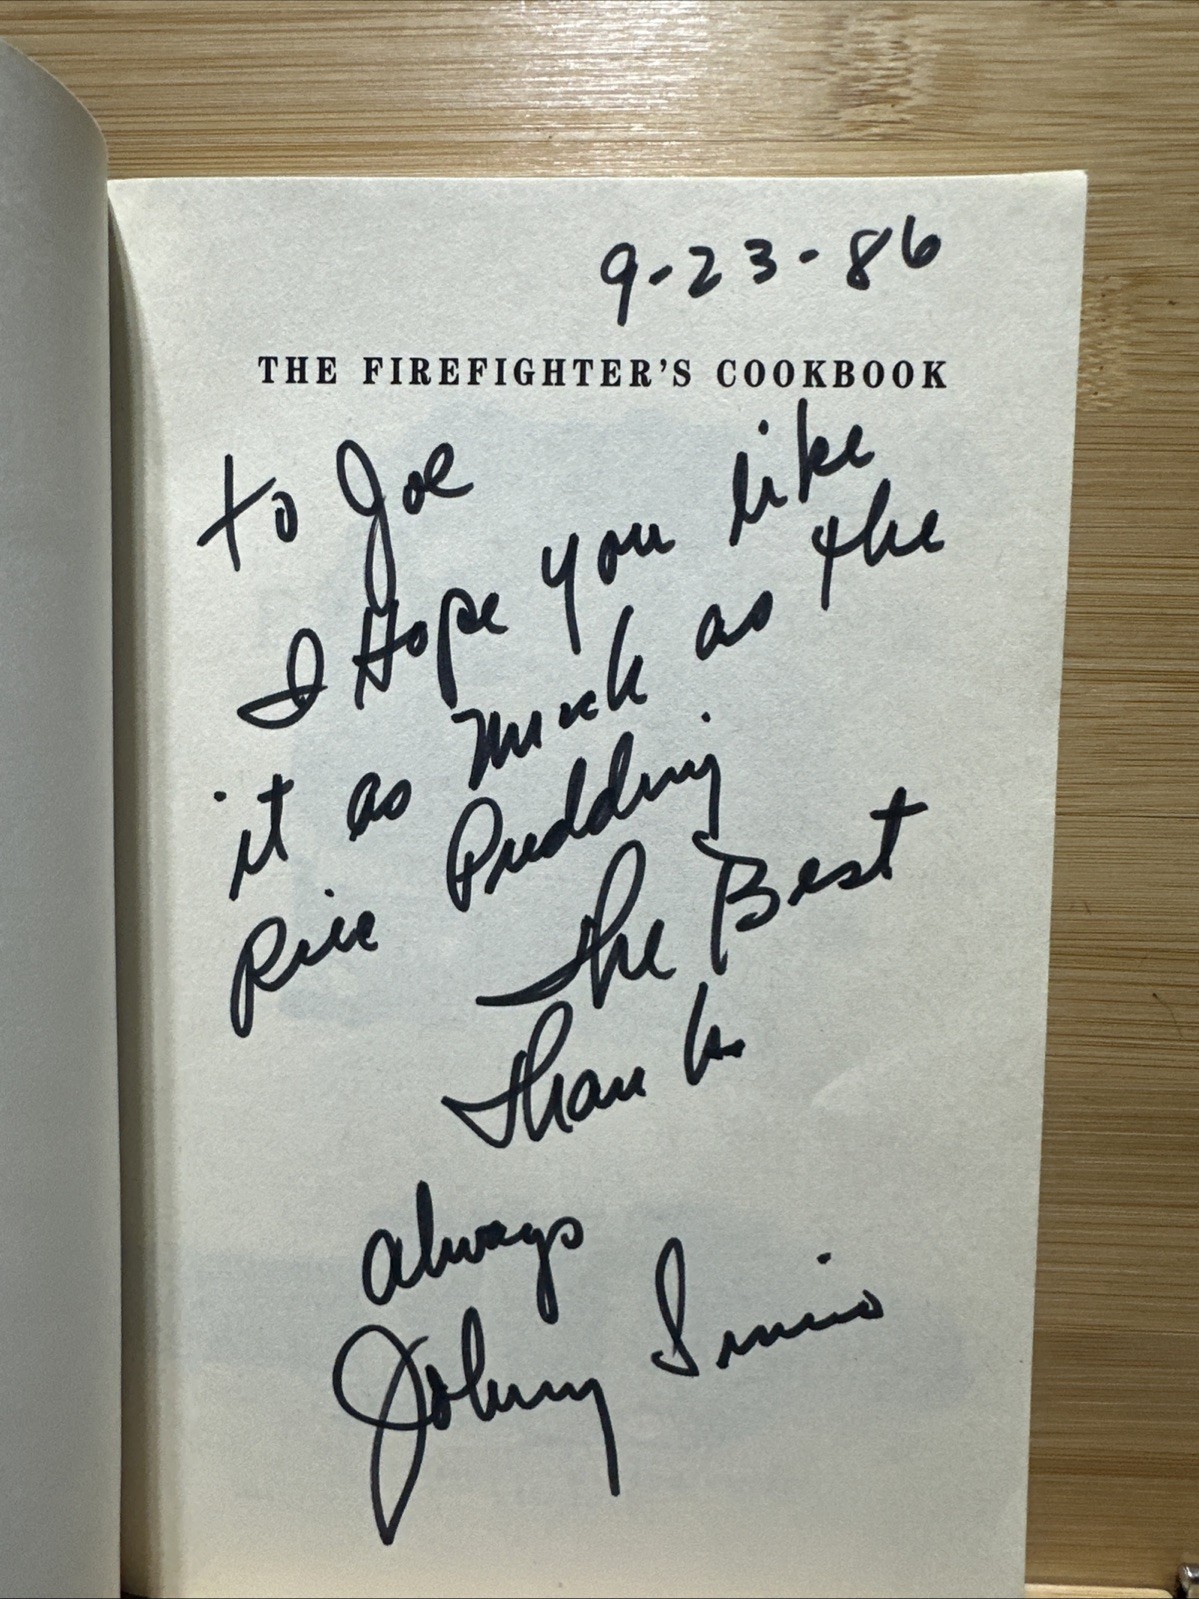 9-23-86
THE FIREFIGHTER'S COOKBOOK
to Joe
I Hope you like
it as Much as the
Rice Pudding
The Best
Thanks
always
Johnny